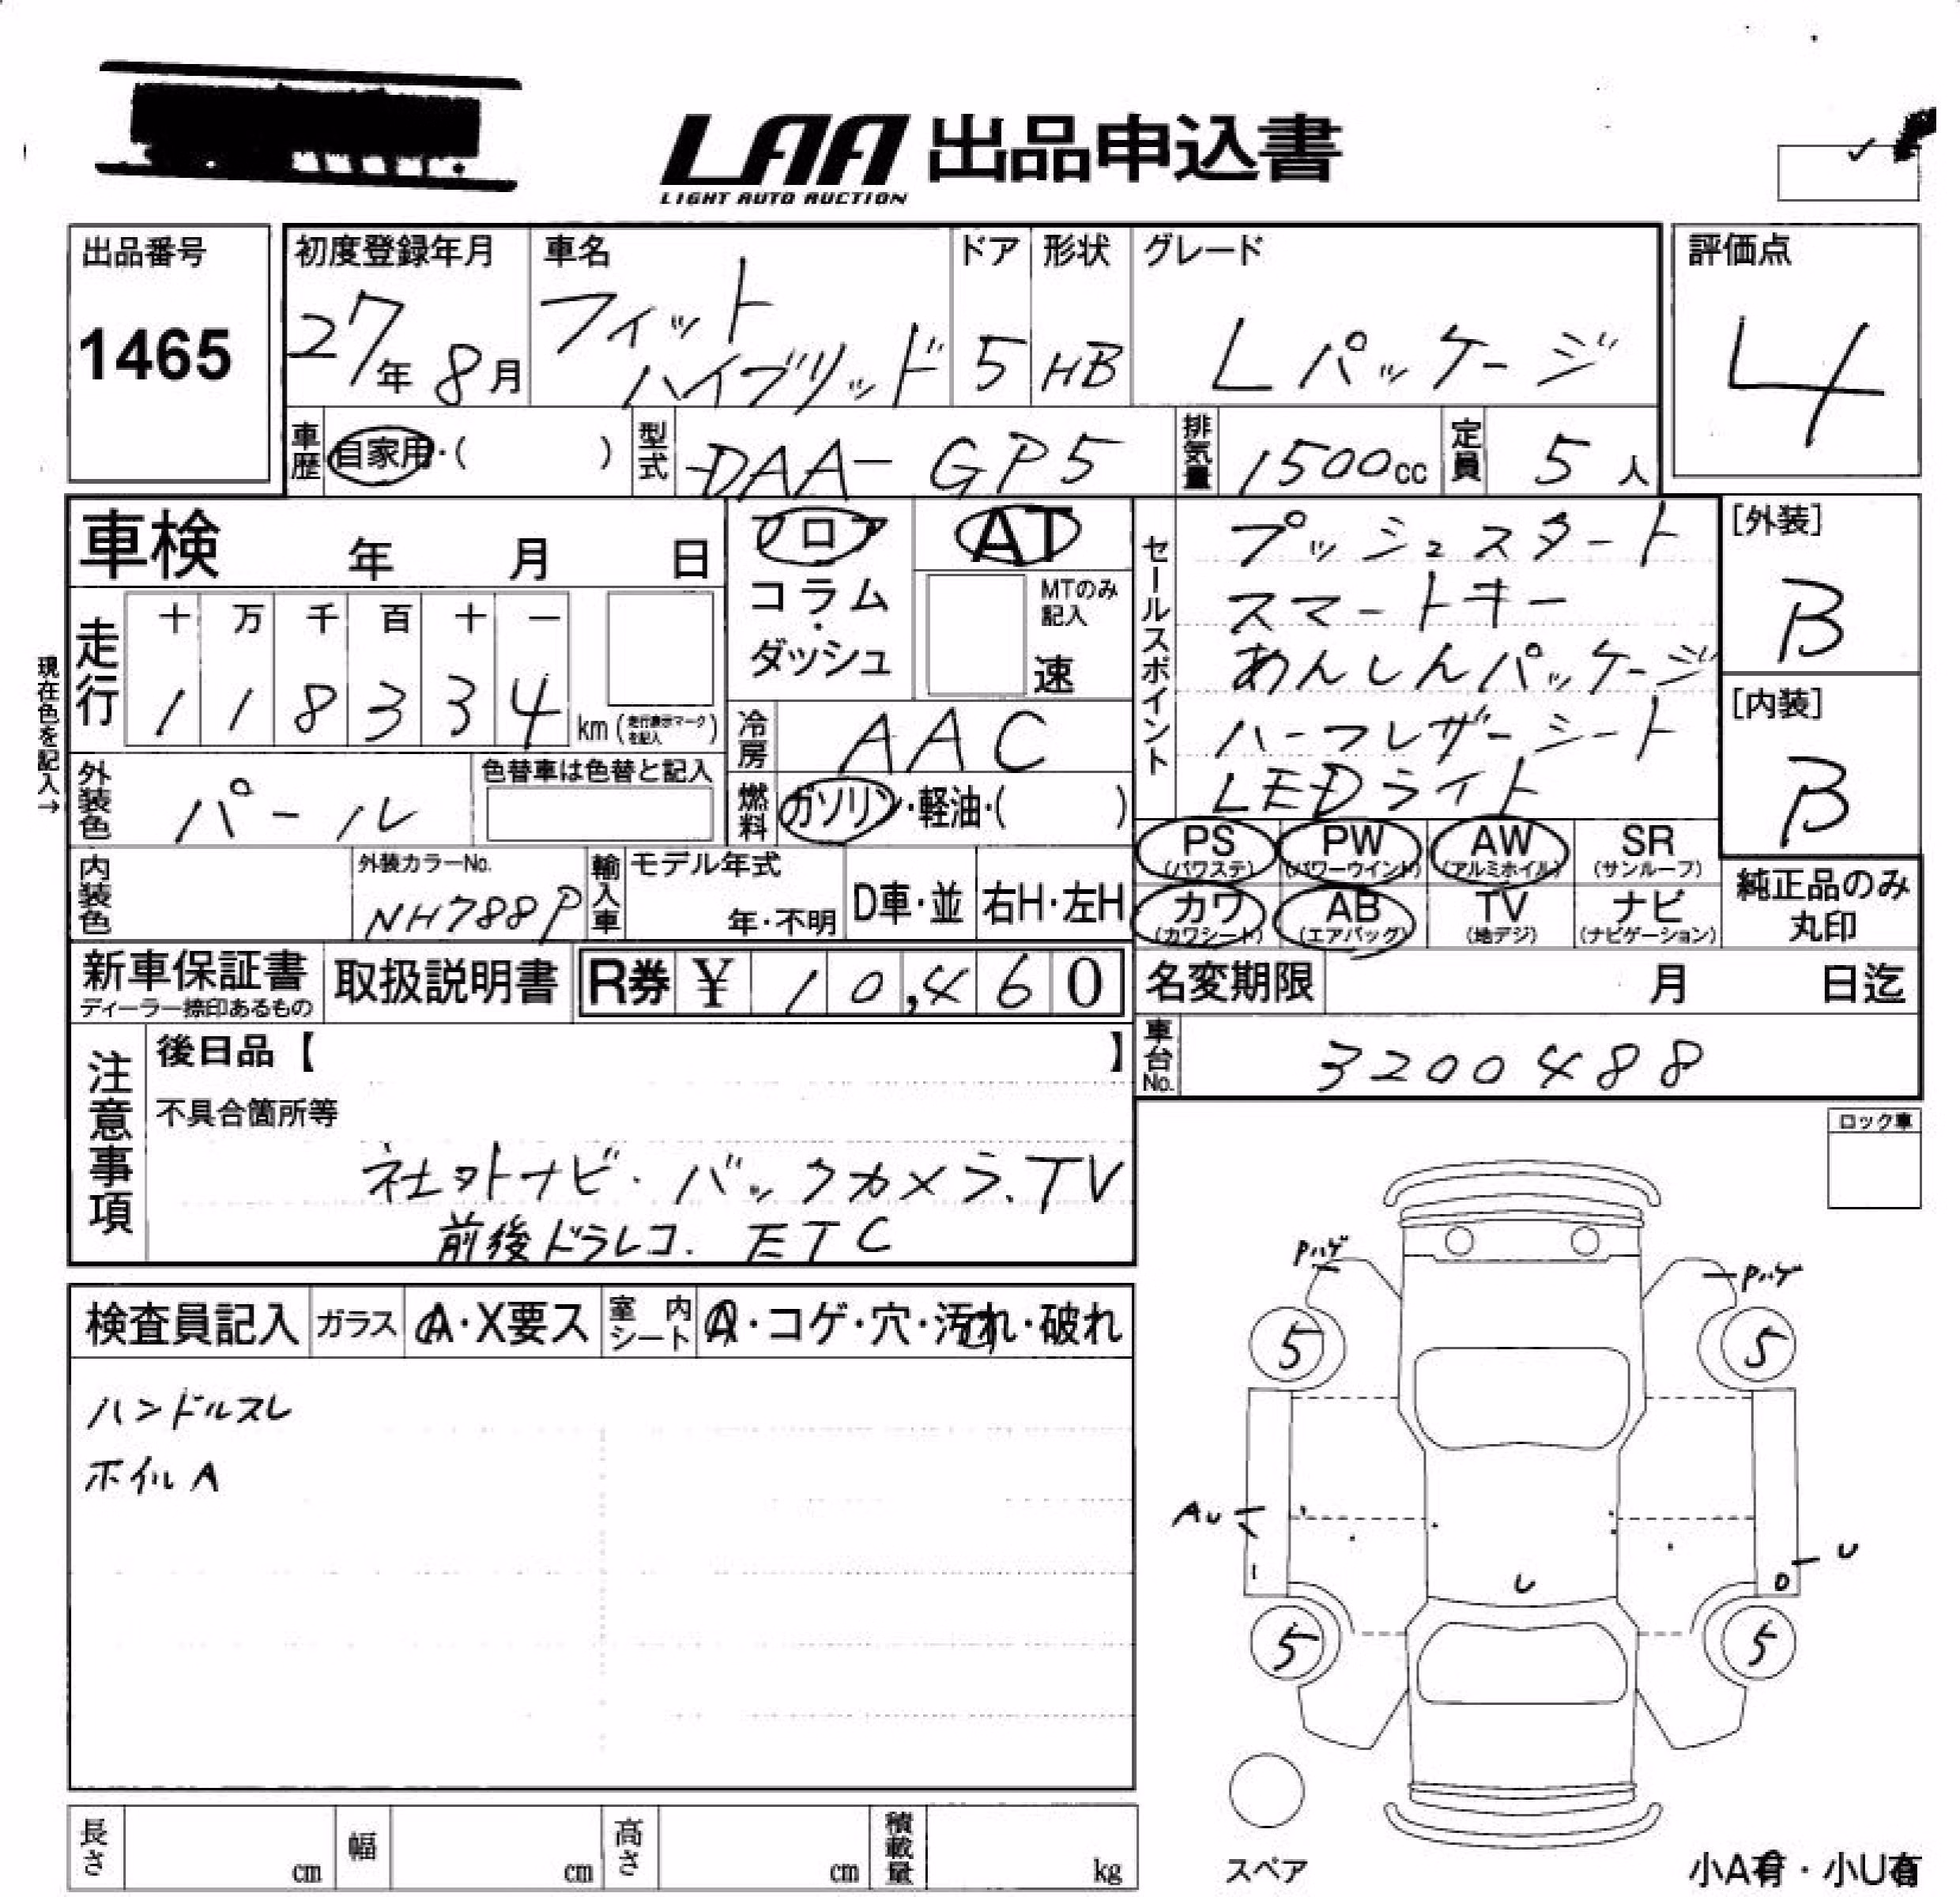 LAA 出品申込書
LIGHT AUTO AUCTION
出品番号
1465
初度登録年月
27年 8月
車名
フィット
ハイブリッド
ドア
5
形状
HB
グレード
Lパッケージ
評価点
4
車歴 自家用・( )
型式 DAA-GP5
排気量 1500cc
定員 5人
車検 年 月 日
フロア
コラム・
ダッシュ
AT
MTのみ
記入
速
セールスポイント
プッシュスタート
スマートキー
あんしんパッケージ
ハーフレザーシート
LEDライト
[外装]
B
[内装]
B
現在色を記入→
走行
十 万 千 百 十 一
1 1 8 3 3 4 km (走行表示マークを記入)
冷房 AAC
外装色 パール
色替車は色替と記入
燃料 ガソリン・軽油・( )
PS (パワステ)
PW (パワーウインド)
AW (アルミホイル)
SR (サンルーフ)
カワ (カワシート)
AB (エアバッグ)
TV (地デジ)
ナビ (ナビゲーション)
純正品のみ
丸印
内装色
外装カラーNo.
NH788P
輸入車
モデル年式
年・不明
D車・並
右H・左H
新車保証書
ディーラー捺印あるもの
取扱説明書
R券 ¥ 10,460
名変期限 月 日迄
車台No. 3200488
注意事項
後日品【 】
不具合箇所等
社外ナビ・バックカメラ.TV
前後ドラレコ. ETC
ロック車
検査員記入
ガラス A・X要ス
室内シート A・コゲ・穴・汚れ・破れ
ハンドルスレ
ホイルA
Pハゲ
Pハゲ
5
5
AU
U
U
5
5
スペア
小A有・小U有
長さ cm
幅 cm
高さ cm
積載量 kg